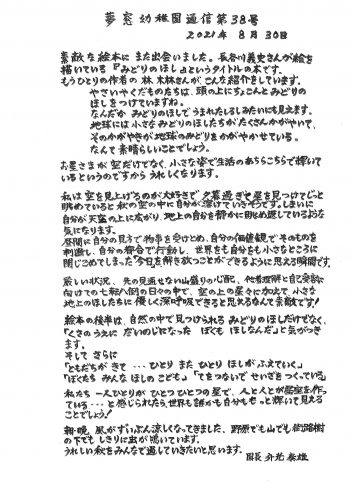 夢窓幼稚園通信第38号
2021年 8月30日
素敵な絵本にまた出会いました。長谷川義史さんが絵を
描いている『みどりのほし』というタイトルの本です。
もうひとりの作者の 林 木林さんが こんな紹介をしています。
やさいやくだものたちは、頭の上にちょこんとみどりの
ほしをつけていますね。
なんだか みどりのほしで うまれたしるしみたいにも見えます。
地球には小さなみどりのほしたちがたくさんかがやいて、
そのかがやきが地球のみどりをかがやかせている。
なんて素晴らしいことでしょう。
お星さまが 空だけでなく、小さな姿で生活のあちらこちらで輝いて
いるというのですから うれしくなります。
私は 空を見上げるのが大好きで 夕暮過ぎや星を見つけてじっと
眺めていると 私の空の中に自分が溶けていきそうです。しまいに
自分が天空の上に広がり、地上の自分を静かに眺め返しているような
気になります。
昼間に自分の見方で物事を受けとめ、自分の価値観でそのものを
判断し、自分の都合で行動し、世界をも自分をも小さなところに
閉じこめてしまった今日を解き放つことができるように思える瞬間です。
厳しい状況、先の見通せない山盛りの心配、他者理解と自己
向けての七転八倒の日々の中で、空の上の星々に加えて 小さな
地上のほしたちに 優しく深呼吸できると思えるなんて素敵です!
絵本の後半は、自然の中で見つけられるみどりのほしだけでなく、
「くさのうえに だいのじになった ぼくも ほしなんだ」と気がつき
ます。
そして さらに
「ともだちが きて … ひとり また ひとり ほしが ふえていく」
「ぼくたち みんな ほしの こども」「てをつないで せいざを つくっている」
私たち 一人ひとりが ひとつひとつの星で、人と人とが星座を作っ
ている … と感じられたら、世界も誰かも自分もきっと輝いて見える
ことでしょう!
朝・晩、風がずいぶん涼しくなってきました。野原でも山でも街路樹
の下でも しきりに虫が鳴いています。
うれしい秋をみんなで過していきたいと思います。
園長 升光泰雄